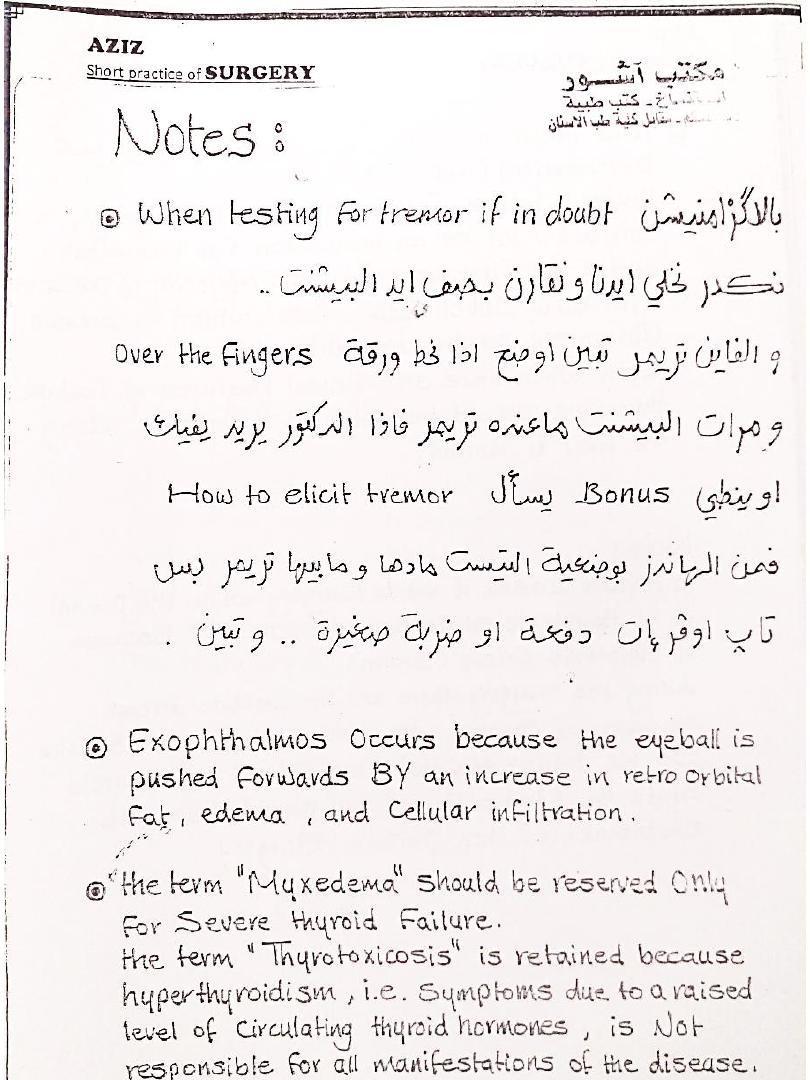 AZIZ
Short practice of SURGERY
مكتب آشور
كتب طبية
مقابل كلية طب الاسنان
Notes :
When testing for tremor if in doubt بالاگزامنيشن
نكدر نخلي ايدنا ونقارن بصف ايد البيشنت ..
و الفاين تريمر تبين اوضح اذا نخط ورقة Over the fingers
و مرات البيشنت ماعنده تريمر فاذا الدكتور يريد يفيدك
او ينطي Bonus يسأل How to elicit tremor
فمن الهاندز بوضعية التيست مادها و مابيها تريمر بس
تاپ اوف هات دفعة او ضربة صغيرة .. و تبين .
Exophthalmos Occurs because the eyeball is
pushed forwards BY an increase in retro orbital
fat, edema, and Cellular infiltration.
the term "Myxedema" should be reserved Only
for Severe thyroid Failure.
the term "Thyrotoxicosis" is retained because
hyperthyroidism, i.e. Symptoms due to a raised
level of Circulating thyroid hormones, is Not
responsible for all manifestations of the disease.